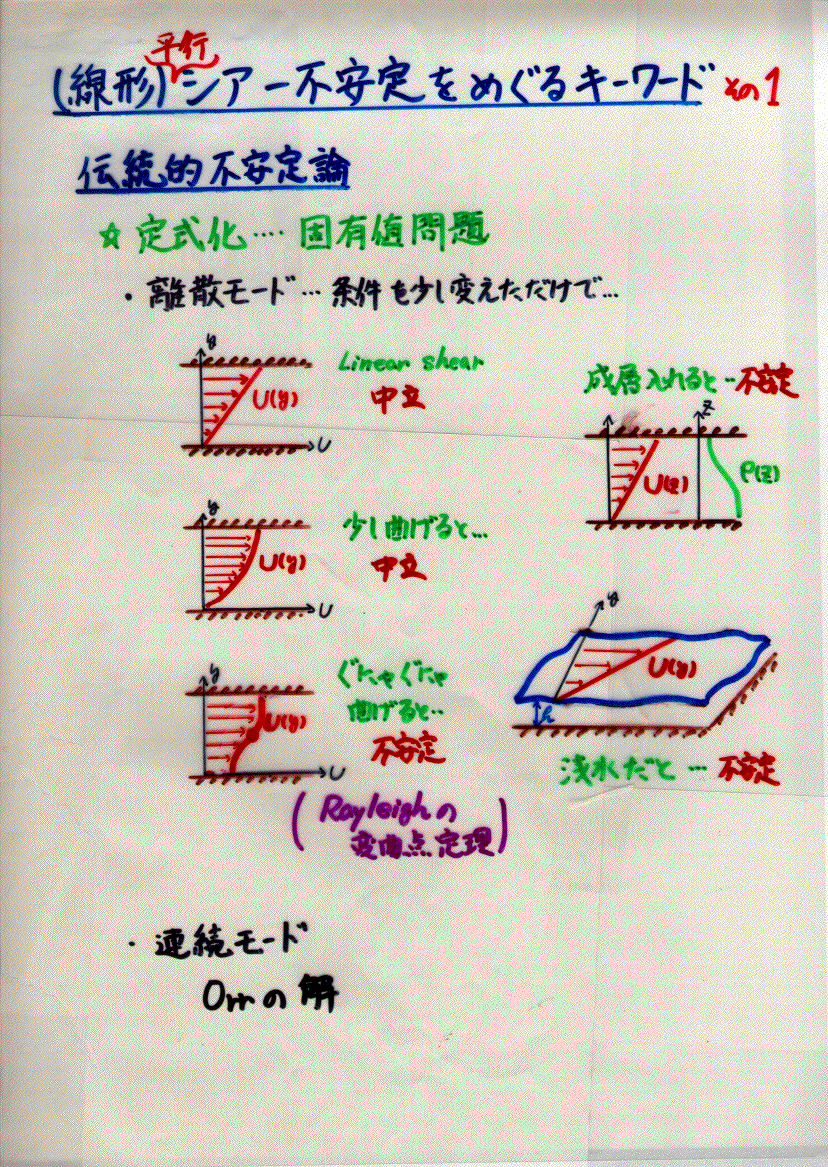 平行
(線形)シアー不安定をめぐるキーワード その1
伝統的不安定論
☆ 定式化…. 固有値問題
・離散モード… 条件を少し変えただけで…
y
Linear shear
中立
U(y)
U
成層入れると…不安定
z
U(z)
ρ(z)
y
少し曲げると…
中立
U(y)
U
y
ぐにゃぐにゃ
曲げると…
不安定
U(y)
U
y
U(y)
h
浅水だと … 不安定
(Rayleighの
変曲点定理)
・連続モード
Orrの解